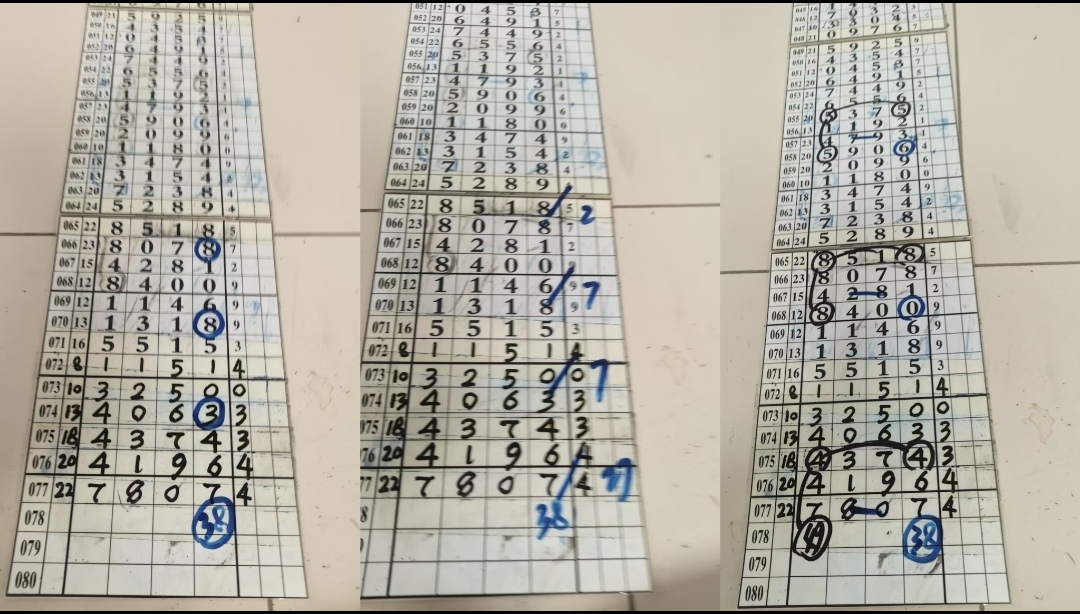 049 21 5 9 2 5 9
050 16 4 3 5 4 7
051 12 0 4 5 8 7
052 20 6 4 9 1 5
053 24 7 4 4 9 2
054 22 6 5 5 6 4
055 20 5 3 7 5 2
056 13 1 1 9 2 1
057 23 4 7 9 3 1
058 20 5 9 0 6 4
059 20 2 0 9 9 6
060 10 1 1 8 0 0
061 18 3 4 7 4 9
062 13 3 1 5 4 2
063 20 7 2 3 8 4
064 24 5 2 8 9 4
065 22 8 5 1 8 5
066 23 8 0 7 8 7
067 15 4 2 8 1 2
068 12 8 4 0 0 9
069 12 1 1 4 6 9
070 13 1 3 1 8 9
071 16 5 5 1 5 3
072 8 1 1 5 1 4
073 10 3 2 5 0 0
074 13 4 0 6 3 3
075 18 4 3 7 4 3
076 20 4 1 9 6 4
077 22 7 8 0 7 4
078 38
079
080
051 12 0 4 5 8 7
052 20 6 4 9 1 5
053 24 7 4 4 9 2
054 22 6 5 5 6 4
055 20 5 3 7 5 2
056 13 1 1 9 2 1
057 23 4 7 9 3 1
058 20 5 9 0 6 4
059 20 2 0 9 9 6
060 10 1 1 8 0 0
061 18 3 4 7 4 9
062 13 3 1 5 4 2
063 20 7 2 3 8 4
064 24 5 2 8 9
065 22 8 5 1 8 5 2
066 23 8 0 7 8 7
067 15 4 2 8 1 2
068 12 8 4 0 0 9
069 12 1 1 4 6 9 7
070 13 1 3 1 8 9
071 16 5 5 1 5 3
072 8 1 1 5 1 4
073 10 3 2 5 0 0 7
074 13 4 0 6 3 3
075 18 4 3 7 4 3
76 20 4 1 9 6 4
77 22 7 8 0 7 4
8 38
9
0
047 10 3 3 0 4 6
048 21 0 9 7 6 7
049 21 5 9 2 5 9
050 16 4 3 5 4 7
051 12 0 4 5 8 7
052 20 6 4 9 1 5
053 24 7 4 4 9 2
054 22 6 5 5 6 4
055 20 5 3 7 5 2
056 13 1 1 9 2 1
057 23 4 7 9 3 1
058 20 5 9 0 6 4
059 20 2 0 9 9 6
060 10 1 1 8 0 0
061 18 3 4 7 4 9
062 13 3 1 5 4 2
063 20 7 2 3 8 4
064 24 5 2 8 9 4
065 22 8 5 1 8 5
066 23 8 0 7 8 7
067 15 4 2 8 1 2
068 12 8 4 0 0 9
069 12 1 1 4 6 9
070 13 1 3 1 8 9
071 16 5 5 1 5 3
072 8 1 1 5 1 4
073 10 3 2 5 0 0
074 13 4 0 6 3 3
075 18 4 3 7 4 3
076 20 4 1 9 6 4
077 22 7 8 0 7 4
078 49 38
079
080